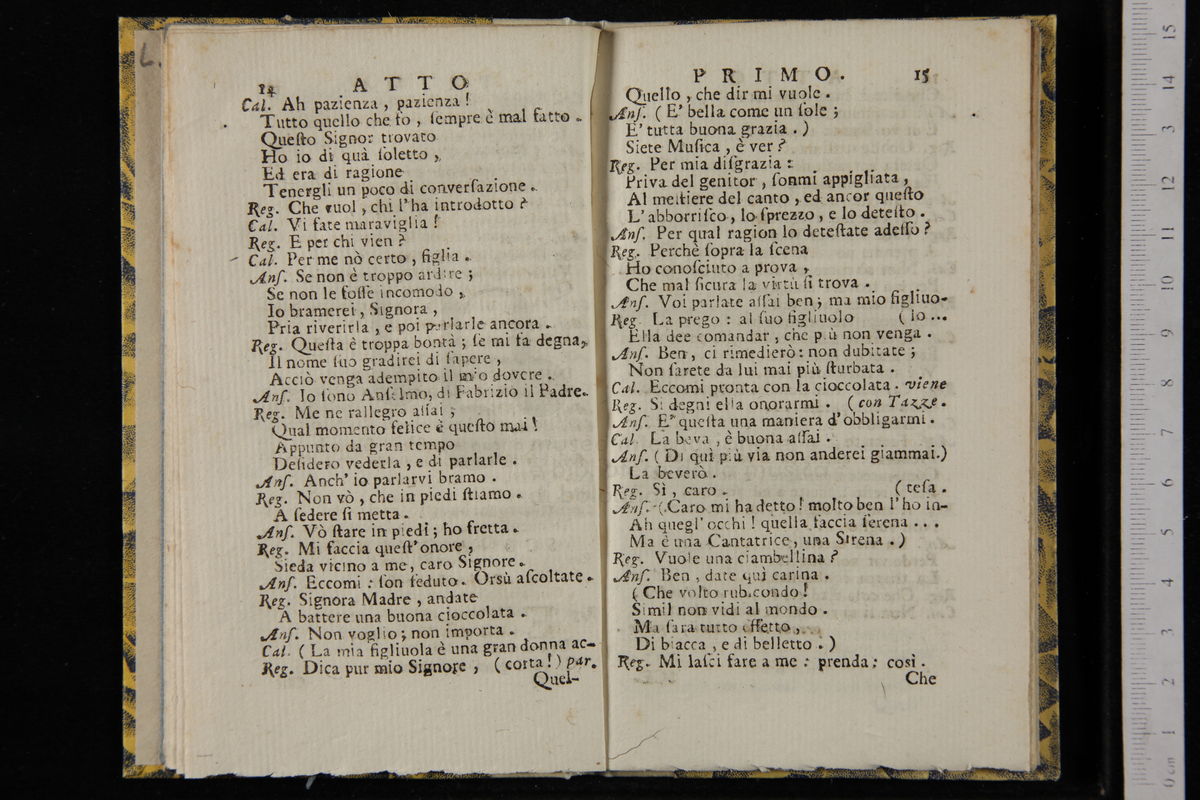 L.
14 ATTO
Cal. Ah pazienza , pazienza !
Tutto quello che fo , ſempre è mal fatto .
Queſto Signor trovato
Ho io di quà ſoletto ,
Ed era di ragione
Tenergli un poco di converſazione .
Reg. Che vuol , chi l'ha introdotto ?
Cal. Vi fate maraviglia !
Reg. E per chi vien ?
Cal. Per me nò certo , figlia .
Anſ. Se non è troppo ardire ;
Se non le foſſe incomodo ,
Io bramerei , Signora ,
Pria riverirla , e poi parlarle ancora .
Reg. Queſta è troppa bontà ; ſe mi fa degna,
Il nome ſuo gradirei di ſapere ,
Acciò venga adempito il mio dovere .
Anſ. Io ſono Anſelmo, di Fabrizio il Padre.
Reg. Me ne rallegro aſſai ;
Qual momento felice è queſto mai !
Appunto da gran tempo
Deſidero vederla , e di parlarle .
Anſ. Anch' io parlarvi bramo .
Reg. Non vò , che in piedi ſtiamo .
A ſedere ſi metta .
Anſ. Vò ſtare in piedi ; ho fretta .
Reg. Mi faccia queſt'onore ,
Sieda vicino a me, caro Signore .
Anſ. Eccomi : ſon ſeduto . Orsù aſcoltate .
Reg. Signora Madre , andate
A battere una buona cioccolata .
Anſ. Non voglio ; non importa .
Cal. ( La mia figliuola è una gran donna ac-
Reg. Dica pur mio Signore , ( corta ! ) par.
Quel-
PRIMO. 15
Quello , che dir mi vuole .
Anſ. ( E' bella come un ſole ;
E' tutta buona grazia . )
Siete Muſica , è ver ?
Reg. Per mia diſgrazia :
Priva del genitor , ſonmi appigliata ,
Al meſtiere del canto , ed ancor queſto
L' abborriſco , lo ſprezzo , e lo deteſto .
Anſ. Per qual ragion lo deteſtate adeſſo ?
Reg. Perchè ſopra la ſcena
Ho conoſciuto a prova ,
Che mal ſicura la virtù ſi trova .
Anſ. Voi parlate aſſai ben ; ma mio figliuo-
Reg. La prego : al ſuo figliuolo ( lo ...
Ella dee comandar , che più non venga .
Anſ. Ben , ci rimedierò : non dubitate ;
Non ſarete da lui mai più ſturbata .
Cal. Eccomi pronta con la cioccolata . viene
Reg. Si degni ella onorarmi . ( con Tazze .
Anſ. E' queſta una maniera d'obbligarmi .
Cal. La beva , è buona aſſai .
Anſ. ( Di quì più via non anderei giammai.)
La beverò .
Reg. Sì , caro . ( teſa .
Anſ. ( Caro mi ha detto ! molto ben l'ho in-
Ah quegl' occhi ! quella faccia ſerena ...
Ma è una Cantatrice , una Sirena . )
Reg. Vuole una ciambellina ?
Anſ. Ben , date quì carina .
( Che volto rubicondo !
Simil non vidi al mondo .
Ma ſarà tutto effetto ,
Di biacca , e di belletto . )
Reg. Mi laſci fare a me : prenda : così .
Che
0 cm 1 2 3 4 5 6 7 8 9 10 11 12 13 14 15